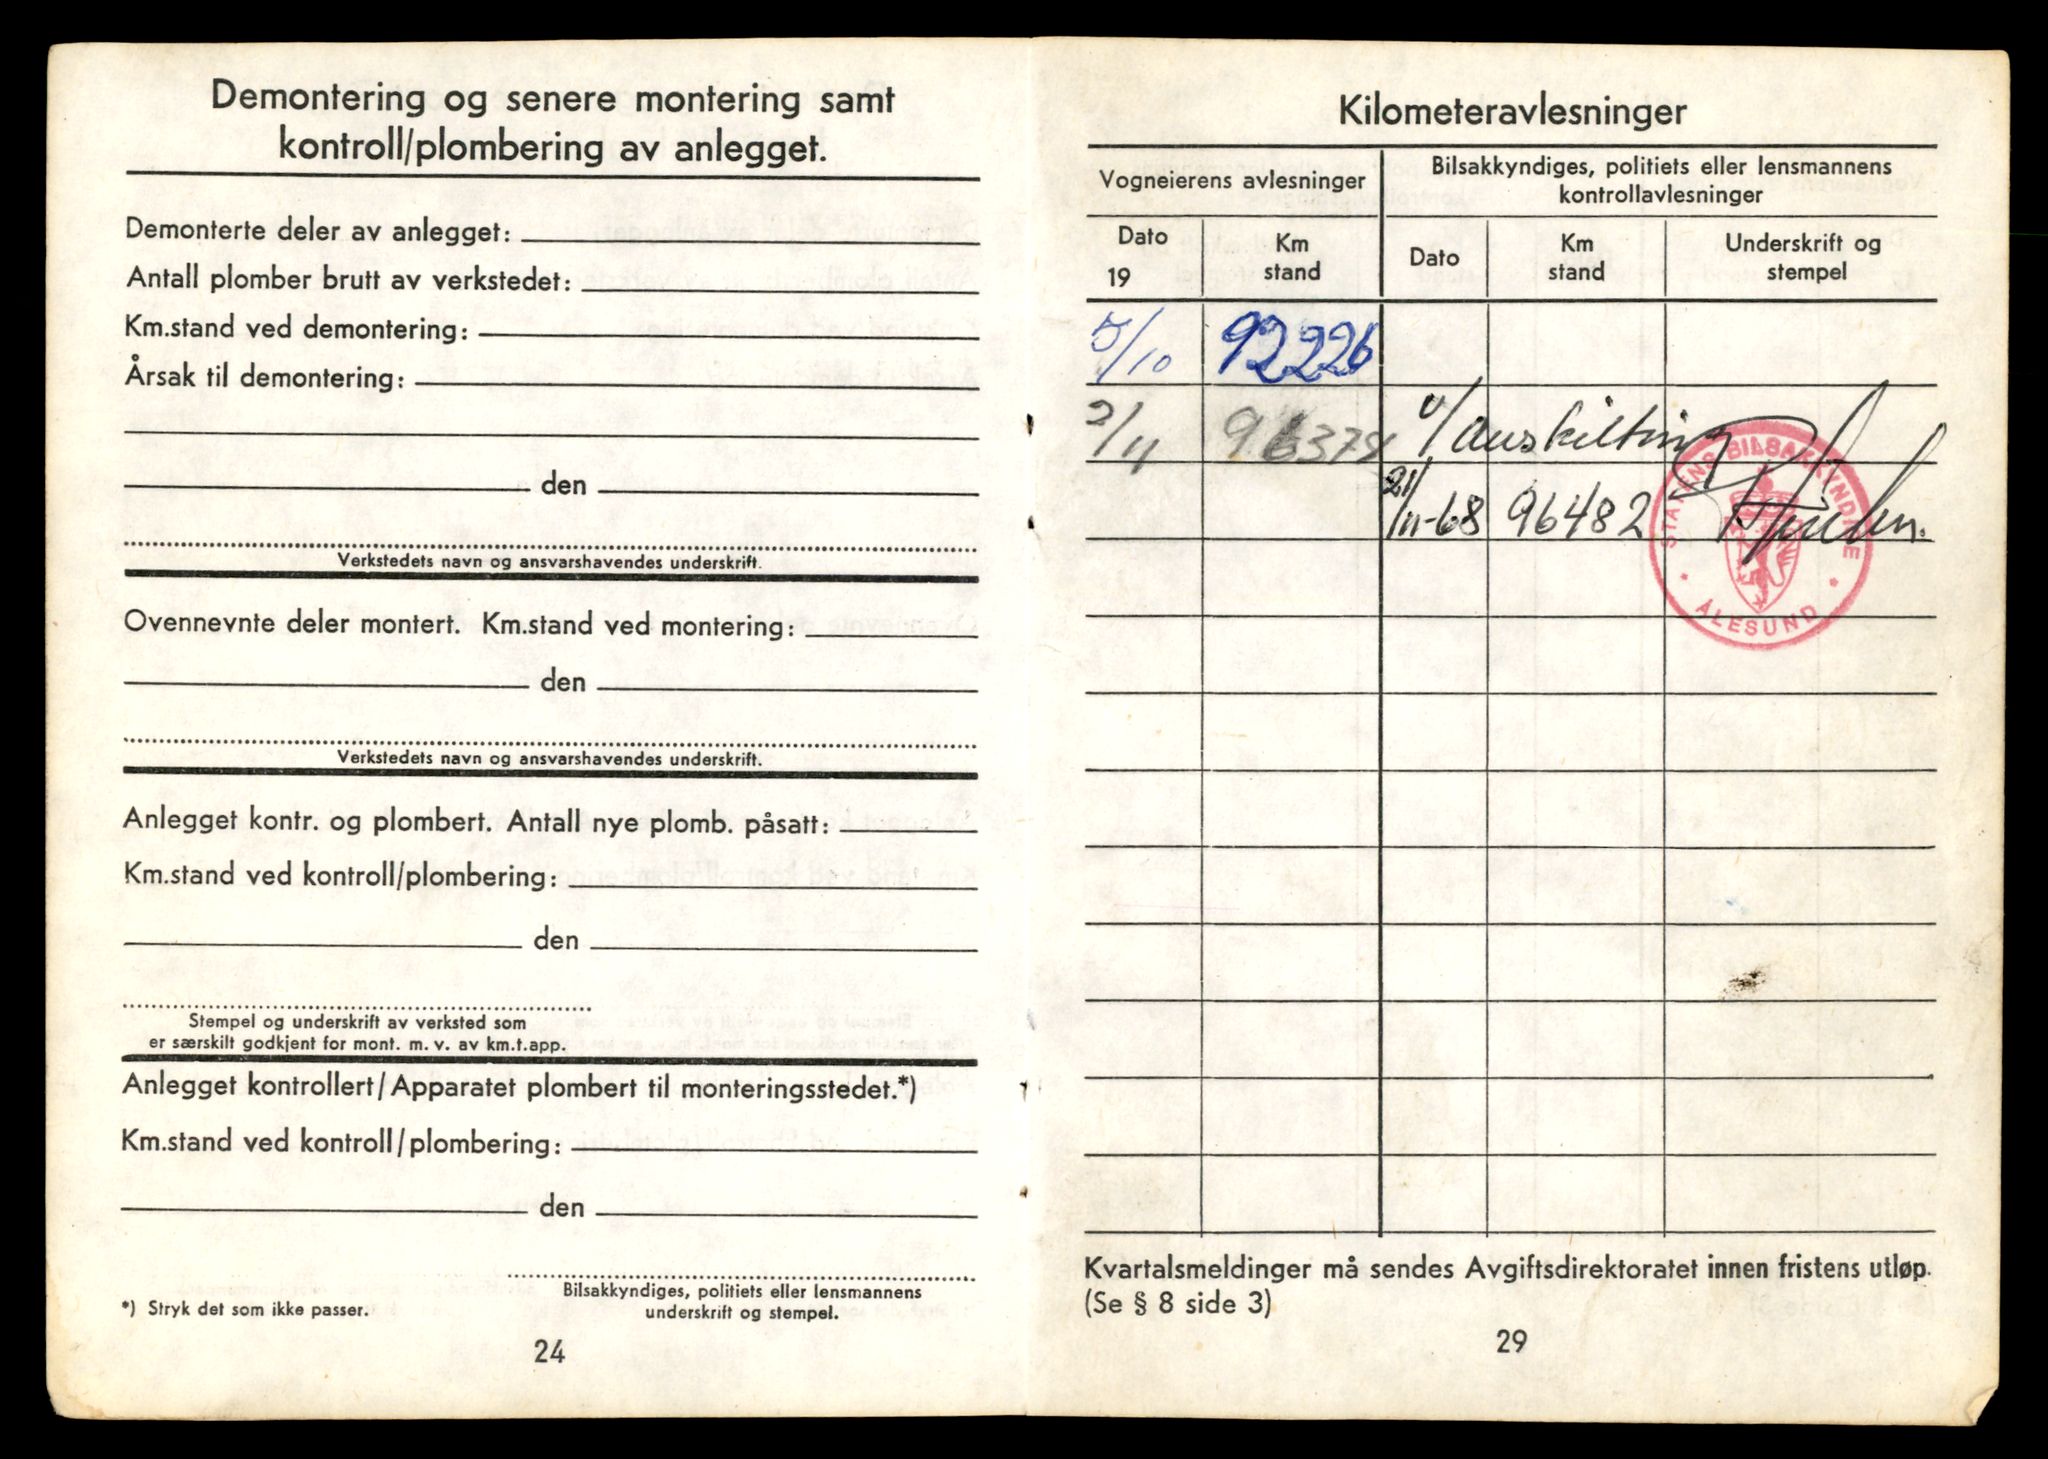 Demontering og senere montering samt
kontroll/plombering av anlegget.
Demonterte deler av anlegget:
Antall plomber brutt av verkstedet:
Km.stand ved demontering:
Årsak til demontering:
den
Verkstedets navn og ansvarshavendes underskrift.
Ovennevnte deler montert. Km.stand ved montering:
den
Verkstedets navn og ansvarshavendes underskrift.
Anlegget kontr. og plombert. Antall nye plomb. påsatt:
Km.stand ved kontroll/plombering:
den
Stempel og underskrift av verksted som
er særskilt godkjent for mont. m. v. av km.t.app.
Anlegget kontrollert/Apparatet plombert til monteringsstedet.*)
Km.stand ved kontroll/plombering:
den
Bilsakkyndiges, politiets eller lensmannens
underskrift og stempel.
*) Stryk det som ikke passer.
24
Kilometeravlesninger
Vogneierens avlesninger
Bilsakkyndiges, politiets eller lensmannens
kontrollavlesninger
Dato
19
Km
stand
Dato
Km
stand
Underskrift og
stempel
5/10 92226
2/11 96378 v/ avskilting
21/11-68 96482
STATENS BILSAKKYNDIGE
ÅLESUND
Kvartalsmeldinger må sendes Avgiftsdirektoratet innen fristens utløp.
(Se § 8 side 3)
29